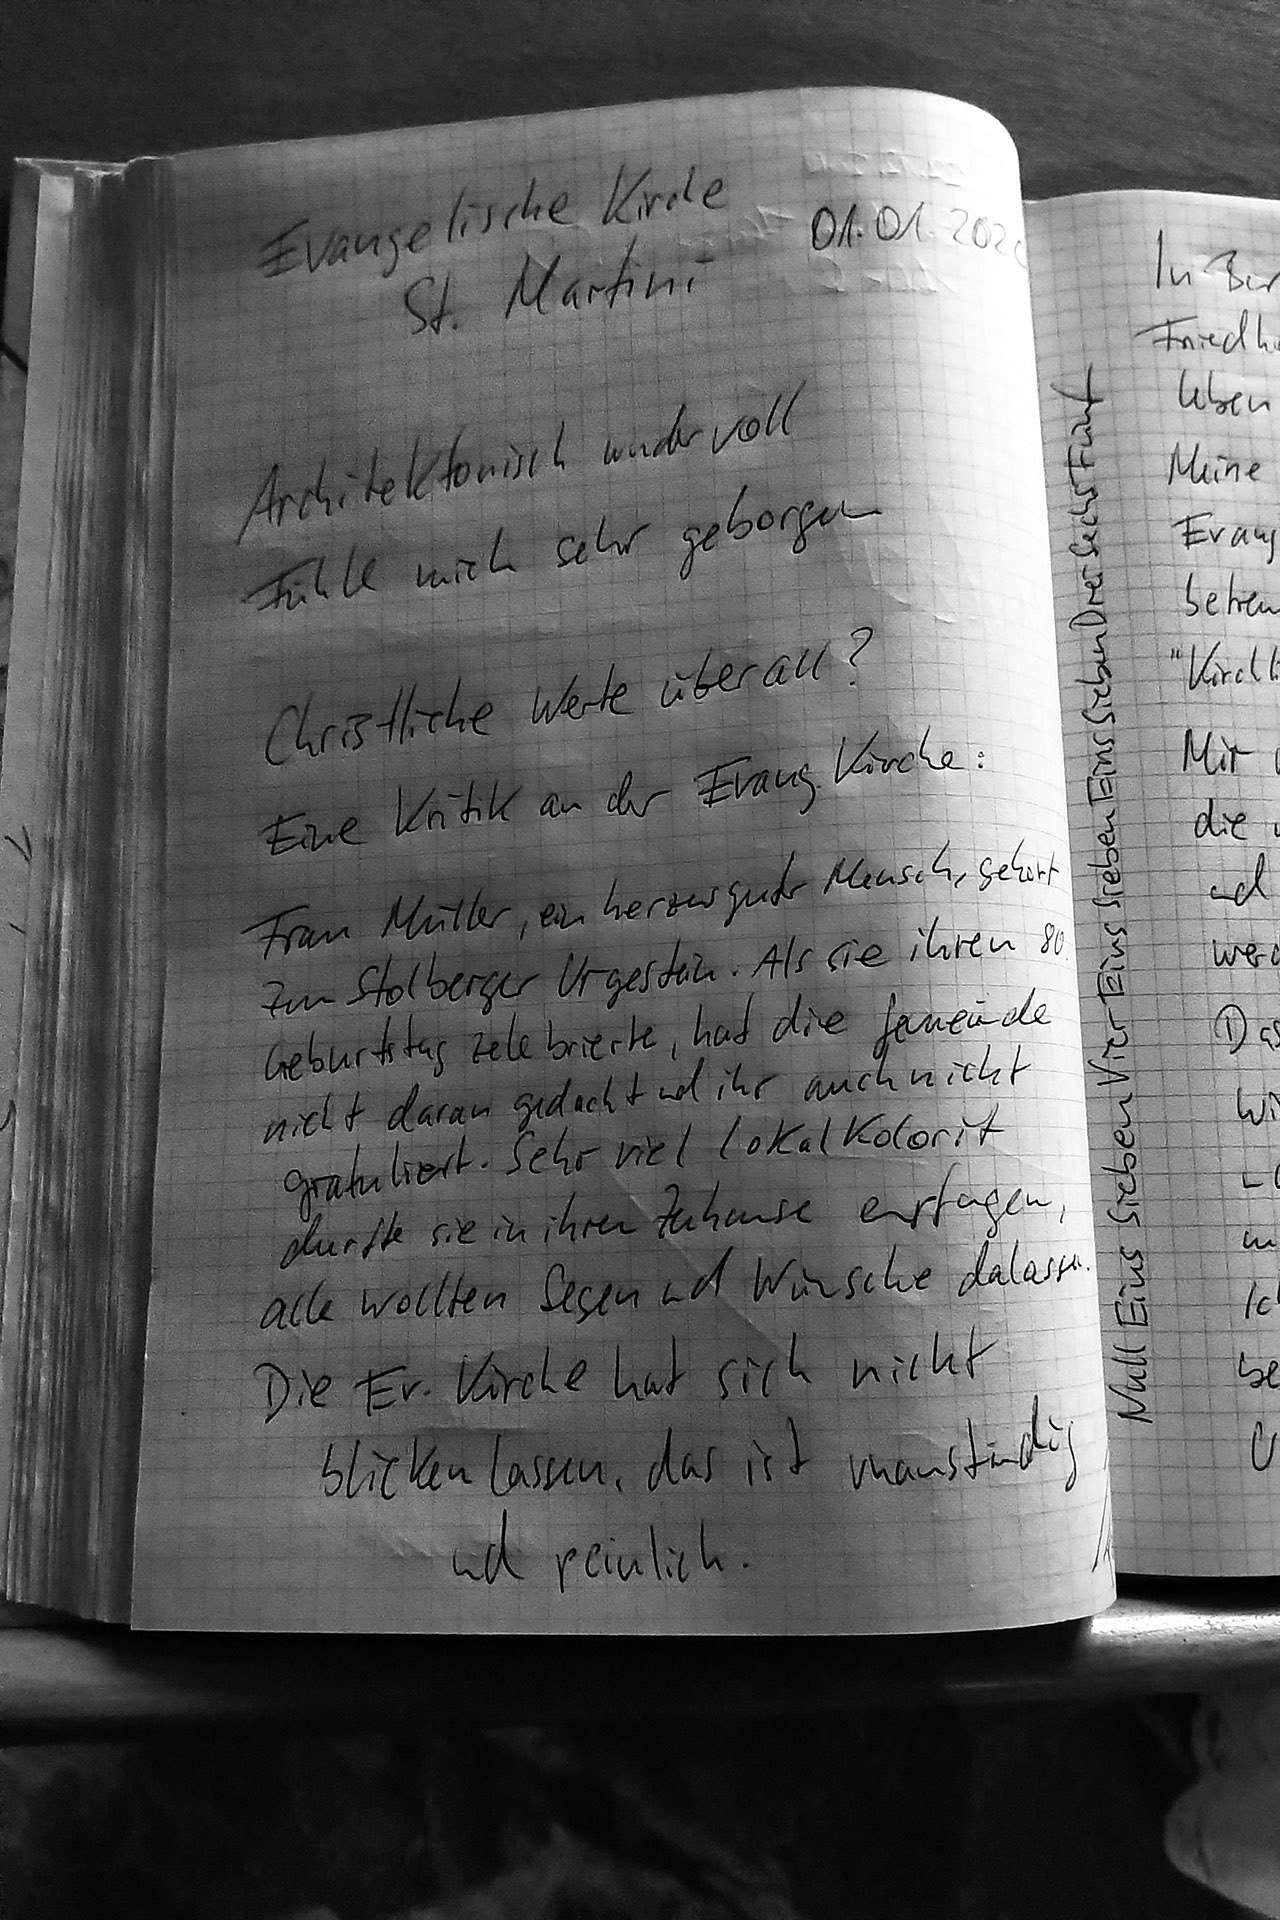 Evangelische Kirche
01.01.202
St. Martini
Architektonisch wundervoll
Fühle mich sehr geborgen
Christliche Werte überall?
Eine Kritik an der Evang. Kirche:
Frau Müller, ein herzensguter Mensch, gehört
zum Stolberger Urgestein. Als sie ihren 80.
Geburtstag zelebrierte, hat die Gemeinde
nicht daran gedacht und ihr auch nicht
gratuliert. Sehr viel Lokalkolorit
durfte sie in ihren Zuhause empfangen,
alle wollten Segen und Wünsche dalassen.
Die Ev. Kirche hat sich nicht
blicken lassen, das ist unanständig
und peinlich.
Null Eins Sieben Vier Eins Sieben Eins Sieben Drei Sechs Fünf
In Ber
Friedh
leben
Meine
Evang
betreu
"Kirchl
Mit
die
und
werd
Das
Wi
Ich
be